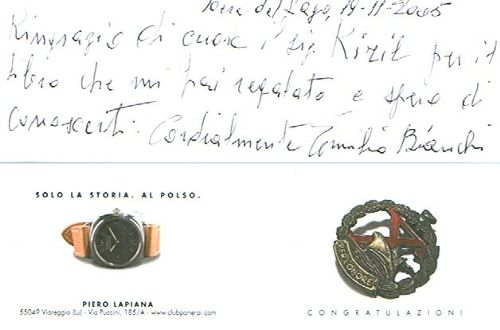 Torre del Lago, 19-11-2005
Ringrazio di cuore il sig Kiril per il
libro che mi hai regalato e spero di
conoscerti. Cordialmente Emilio Bianchi
SOLO LA STORIA. AL POLSO.
PER L'ONORE
PIERO LAPIANA
55049 Viareggio (Lu) - Via Puccini, 185/A - www.clubpanerai.com
CONGRATULAZIONI